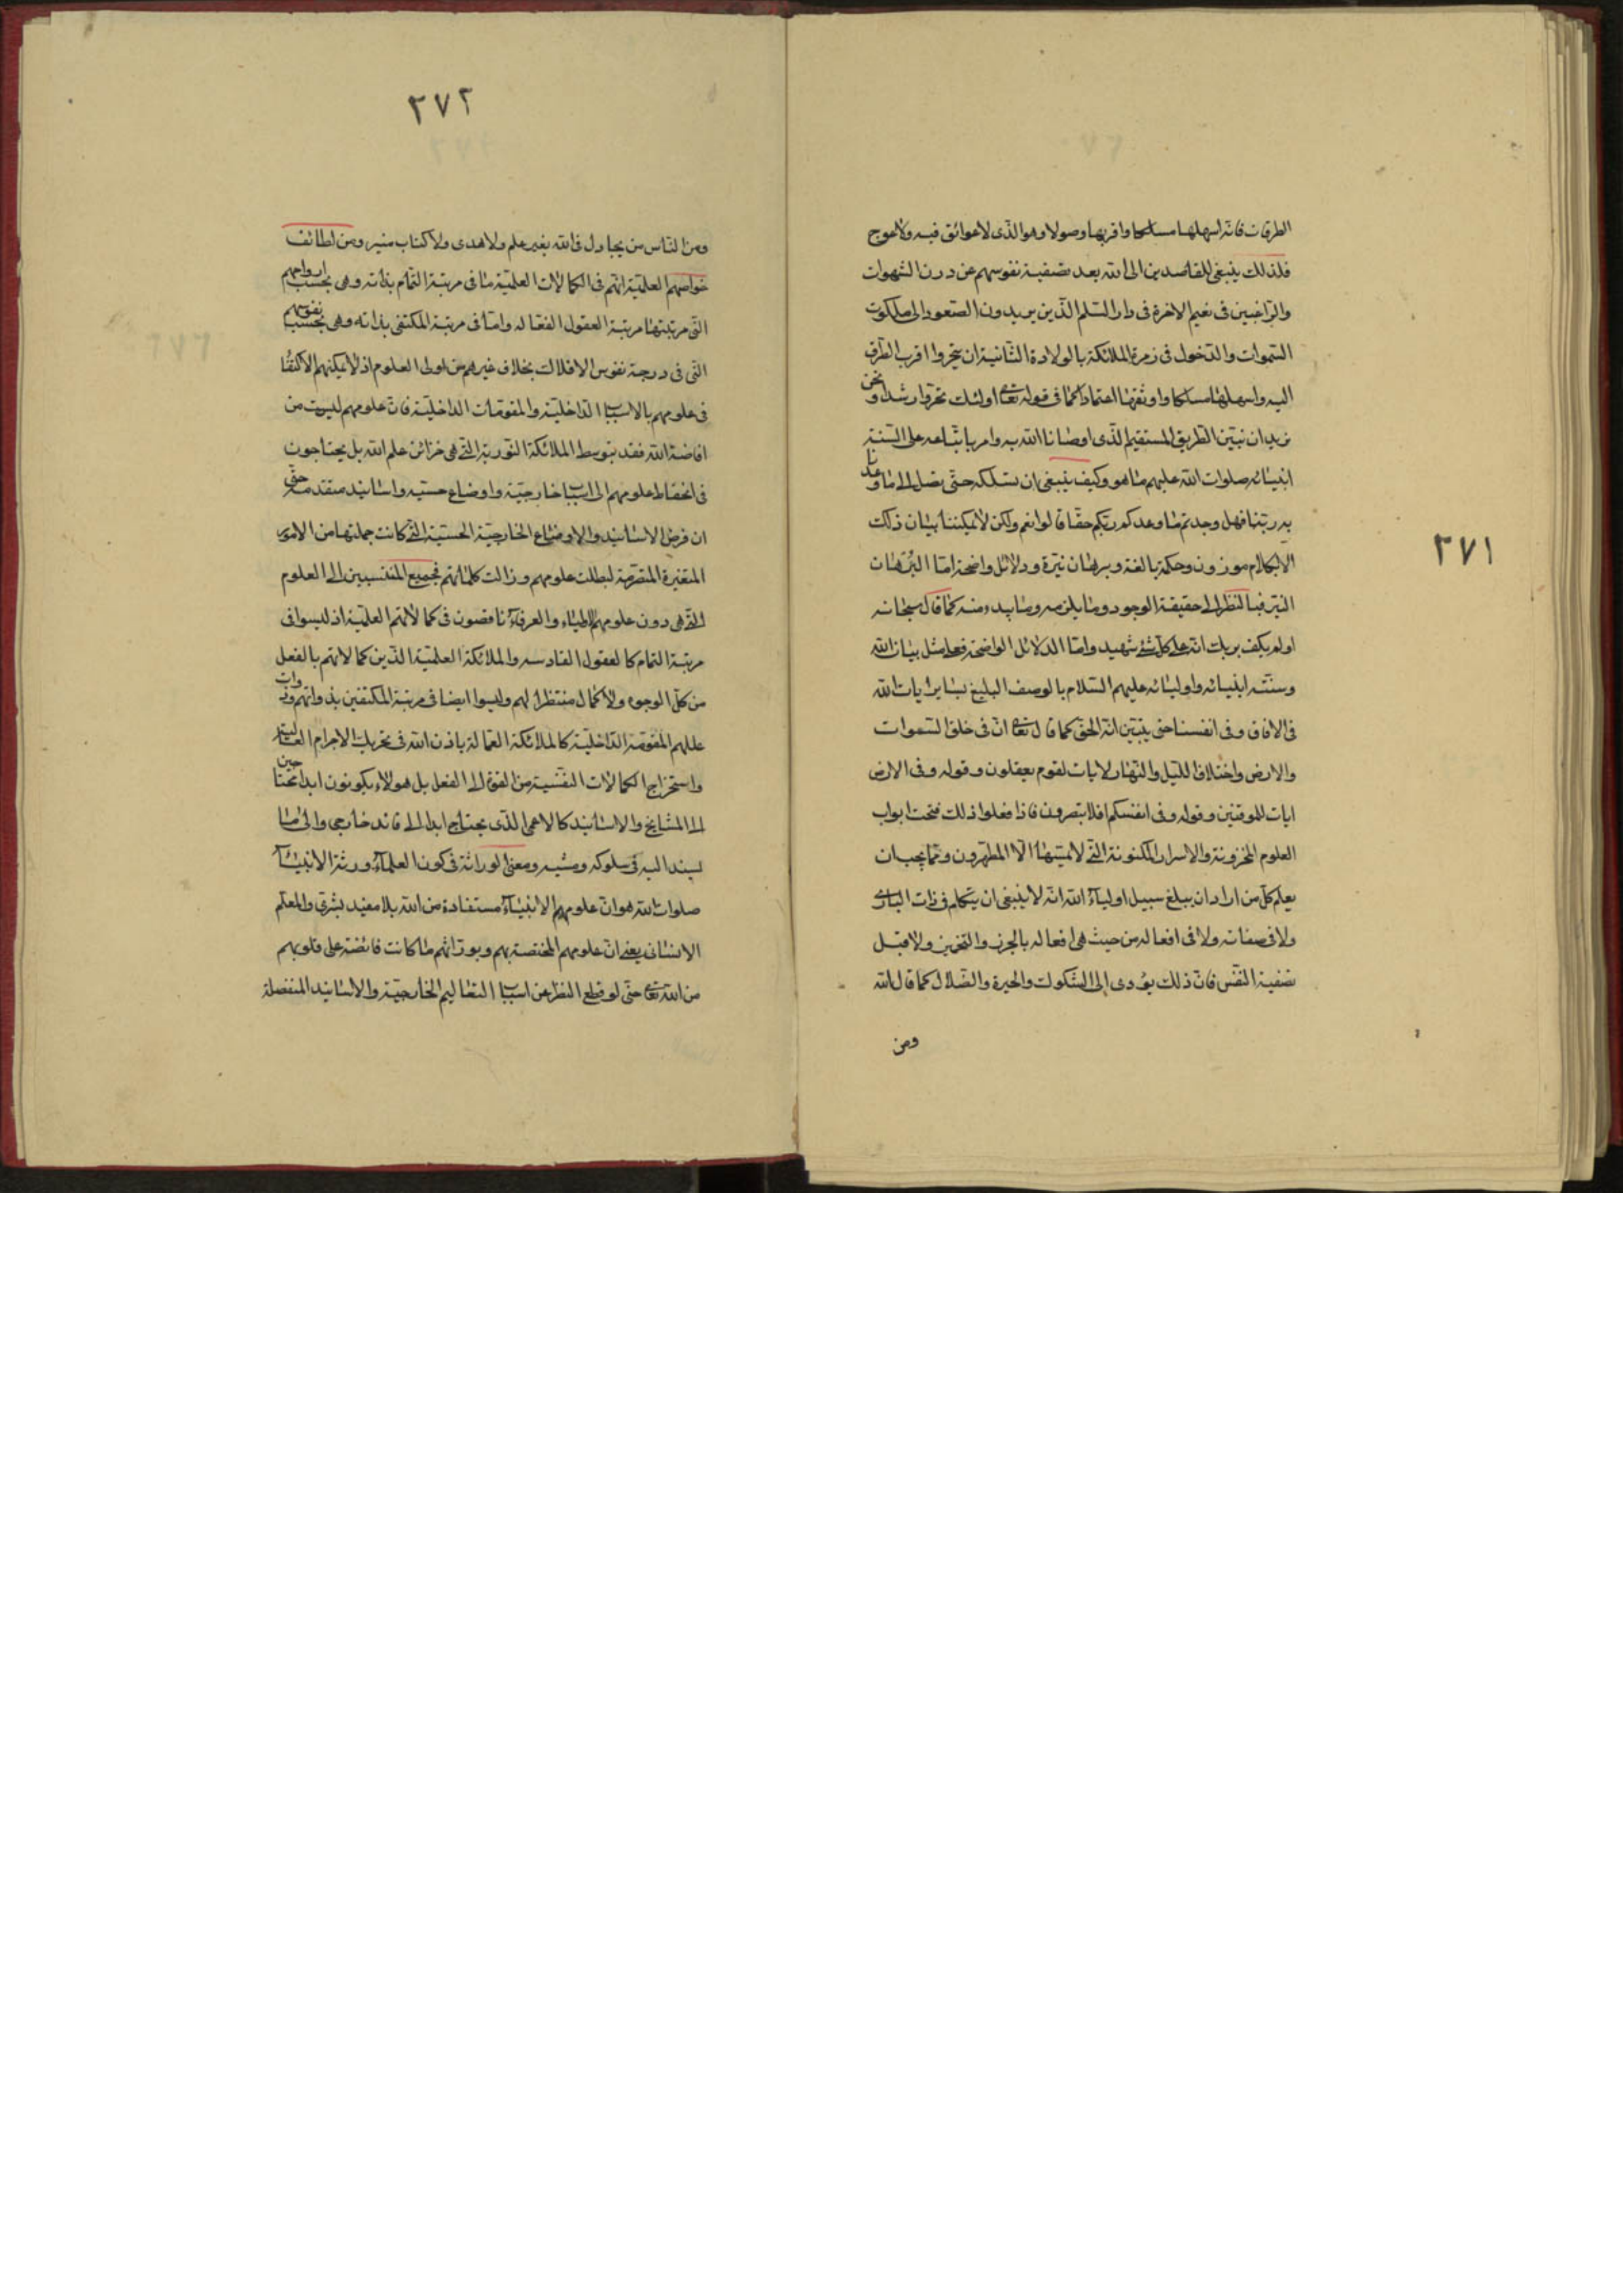 ٢٧١
الطرقات فانه اسهلها مسلكا واقربها وصولا وهو الذى لا عوائق فيه ولا عوج
فلذلك ينبغى للقاصدين الى الله بعد تصفية نفوسهم عن درن الشهوات
والراغبين فى نعيم الاخرة فى دار السلم الذين يريدون الصعود الى ملكوت
السموات والدخول فى زمرة الملائكة بالولادة الثانية ان يتحروا اقرب الطرق
اليه واسهلها مسلكا واوثقها اعتمادا كما فى قوله تعالى اولئك تحروا رشدا ونحن
نريد ان نبين الطريق المستقيم الذى اوصانا الله به وامر باتباعه على السنة
انبيائه صلوات الله عليهم ما هو وكيف ينبغى ان نسلكه حتى نصل الى ما وعدنا
به ربنا فهل وجدتم ما وعدكم ربكم حقا قالوا نعم ولكن لا يمكننا بيان ذلك
الا بكلام موزون وحكمة بالغة وبرهان نيرة ودلائل واضحة اما البرهان
النير فبالنظر الى حقيقة الوجود وما يلزمه وما يبدء منه كما قال سبحانه
اولم يكف بربك انه على كل شئ شهيد واما الدلائل الواضحة فعلى مثل بيان الله
وسنته انبيائه واوليائه عليهم السلام بالوصف البليغ لسايرايات الله
فى الافاق وفى انفسنا حتى يتبين انه الحق كما قال تعالى ان فى خلق السموات
والارض واختلاف الليل والنهار لايات لقوم يعقلون وقوله وفى الارض
ايات للموقنين وقوله وفى انفسكم افلا تبصرون فاذا فعلوا ذلك فتحت ابواب
العلوم المخزونة والاسرار المكنونة التى لا يمسها الا المطهرون ومما يجب ان
يعلم كل من اراد ان يبلغ سبيل اولياء الله انه لا ينبغى ان يتكلم فى ذات البارى
ولا فى صفاته ولا فى افعاله من حيث هى افعاله بالحرز والتخمين ولا قبل
تصفية النفس فان ذلك يؤدى الى الشكوك والحيرة والضلال كما قال الله
ومن
٢٧٢
ومن الناس من يجادل فى الله بغير علم ولا هدى ولا كتاب منير ومن لطائف
خواصهم العلمية انهم فى الكمالات العلمية ما فى مرتبة التمام بذاته وهى بحسب ارواحهم
التى مرتبتها مرتبة العقول الفعاله واما فى مرتبة المكتفى بذاته وهى بحسب نفوسهم
التى فى درجة نفوس الافلاك بخلاف غيرهم من اولى العلوم اذ لا يمكنهم الاكتفا
فى علومهم بالاسباب الداخلية والمقومات الداخلية فان علومهم ليست من
افاضة الله فقد بتوسط الملائكة النورية التى هى خزائن علم الله بل يحتاجون
فى انحفاظ علومهم الى اسباب خارجية واوضاع حسيه واسانيد متقدمه حتى
ان فرض الاسانيد والاوضاع الخارجية الحسية التى كانت جملتها من الامور
المتغيرة المتصرمة لبطلت علومهم وزالت كلماتهم فجميع المنتسبين الى العلوم
التى هى دون علوم الاولياء والعرفاء ناقصون فى كمالاتهم العلمية اذ ليسوا فى
مرتبة التمام كالعقول القادسه والملائكة العلمية الذين كمالاتهم بالفعل
من كل الوجوه ولا كمال منتظرا لهم وليسوا ايضا فى مرتبة المكتفين بذواتهم وذوات
عللهم المقومة الداخلية كالملائكة العمالة باذن الله فى تحريك الاجرام العالية
واستخراج الكمالات النفسية من القوة الى الفعل بل هولاء يكونون ابدا محتاجين
الى المشايخ والاسانيد كالاعمى الذى يحتاج ابدا الى قائد خارجى والى ما
يسند اليه فى سلوكه ومشيه ومعنى الوراثة فى كون العلماء ورثة الانبياء
صلوات الله هو ان علوم الانبياء مستفادة من الله بلا مفيد بشرى والمعلم
الانسانى يعنى ان علومهم المختصة بهم وبوراثهم ما كانت فائضة على قلوبهم
من الله تعالى حتى لو قطع النظر عن اسباب التعاليم الخارجية والاسانيد المنفصلة